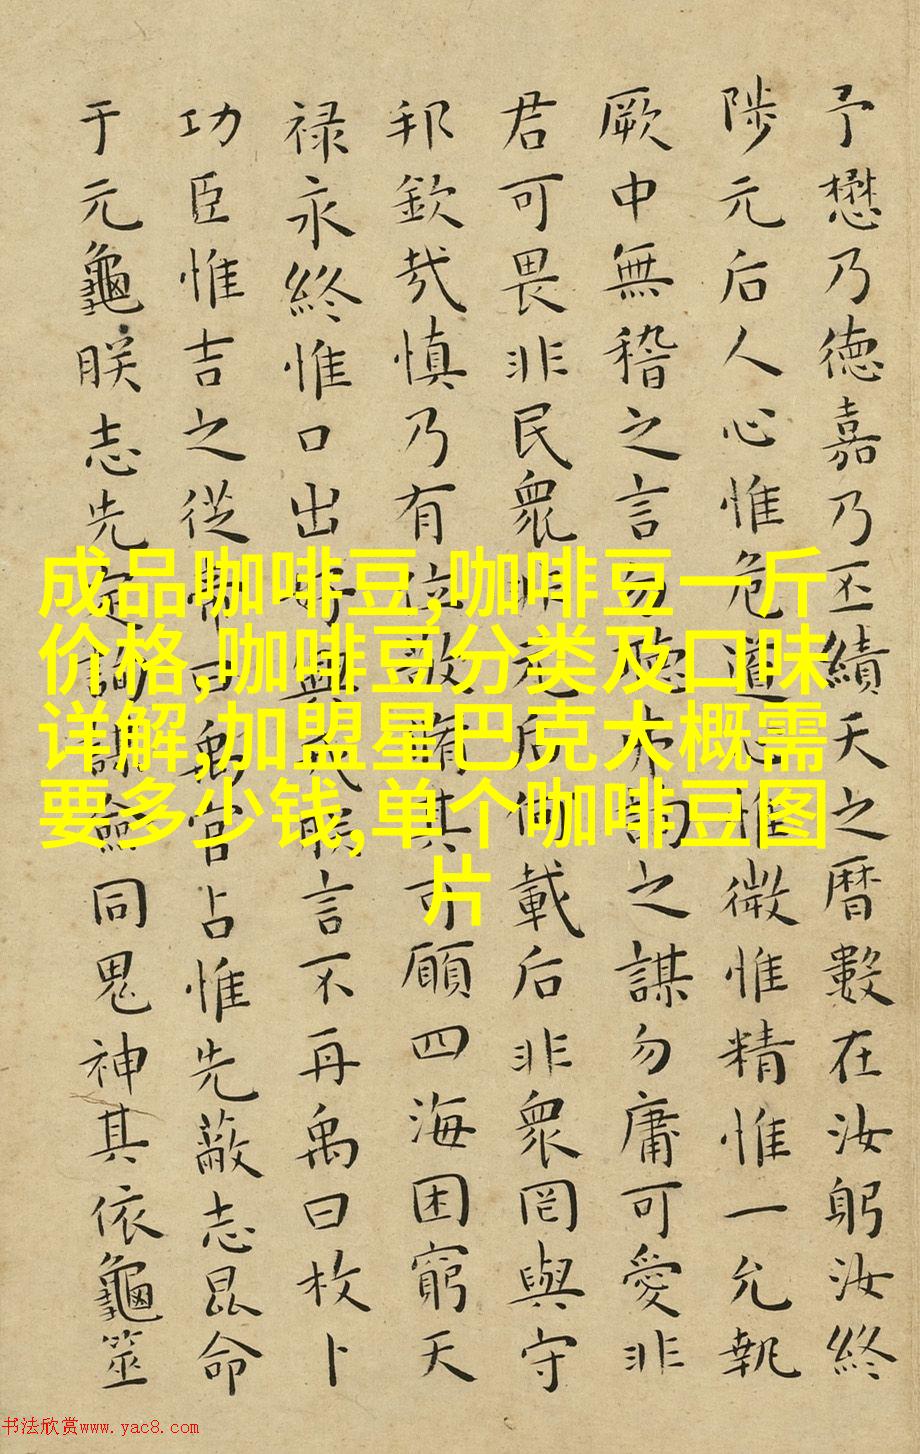 予懋乃德嘉乃丕績天之曆數在汝躬汝終
陟元后人心惟危道心惟微惟精惟一允執
厥中無稽之言勿聽弗詢之謀勿庸可愛非
君可畏非民衆非元后何載后非衆罔與守
邦欽哉慎乃有位敬脩其可願四海困窮天
禄永終惟口出好興戎朕言不再禹曰枚卜
功臣惟吉之從帝曰禹官占惟先蔽志昆命
于元龜朕志先定詢謀僉同鬼神其依龜筮
成品咖啡豆,咖啡豆一斤
价格,咖啡豆分类及口味
详解,加盟星巴克大概需
要多少钱,单个咖啡豆图
片
书法欣赏www.yac8.com